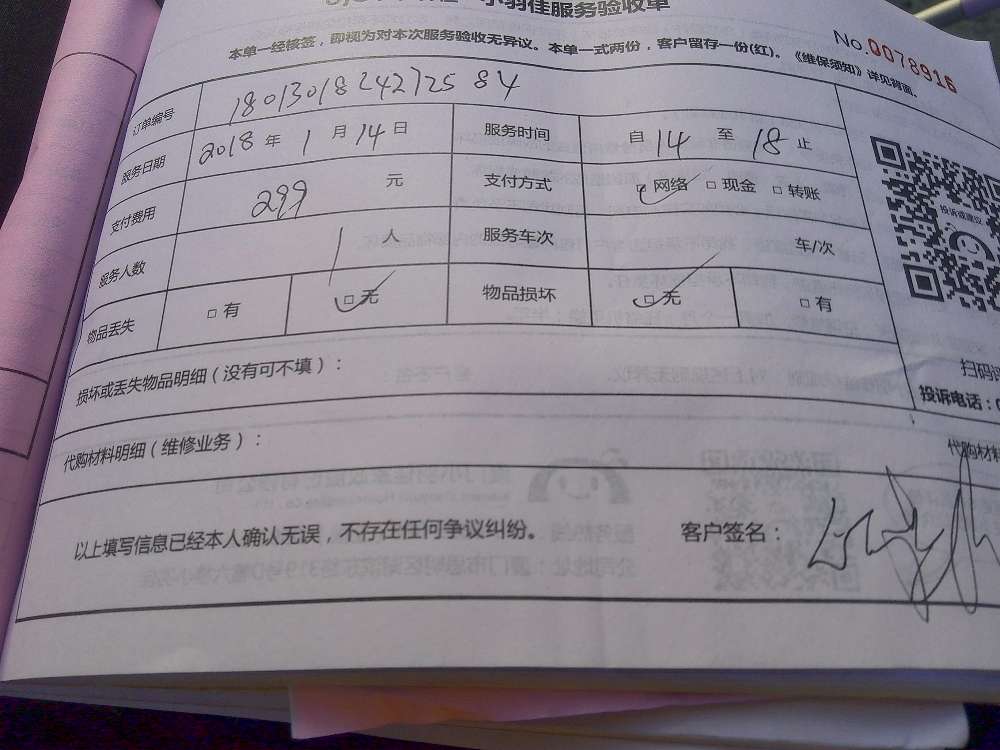 小羽佳服务验收单
本单一经核签，即视为对本次服务验收无异议。本单一式两份，客户留存一份(红)。《维保须知》详见背面。
No.0078916
订单编号 18013018242725 84
服务日期 2018 年 1 月 14 日 服务时间 自 14 至 18 止
支付费用 299 元 支付方式 □ 网络 □ 现金 □ 转账
服务人数 1 人 服务车次 车/次
物品丢失 □ 有 □ 无 物品损坏 □ 无 □ 有
投诉或建议
扫码
投诉电话：0
损坏或丢失物品明细（没有可不填）：
代购材料明细（维修业务）：
代购材料
以上填写信息已经本人确认无误，不存在任何争议纠纷。 客户签名：